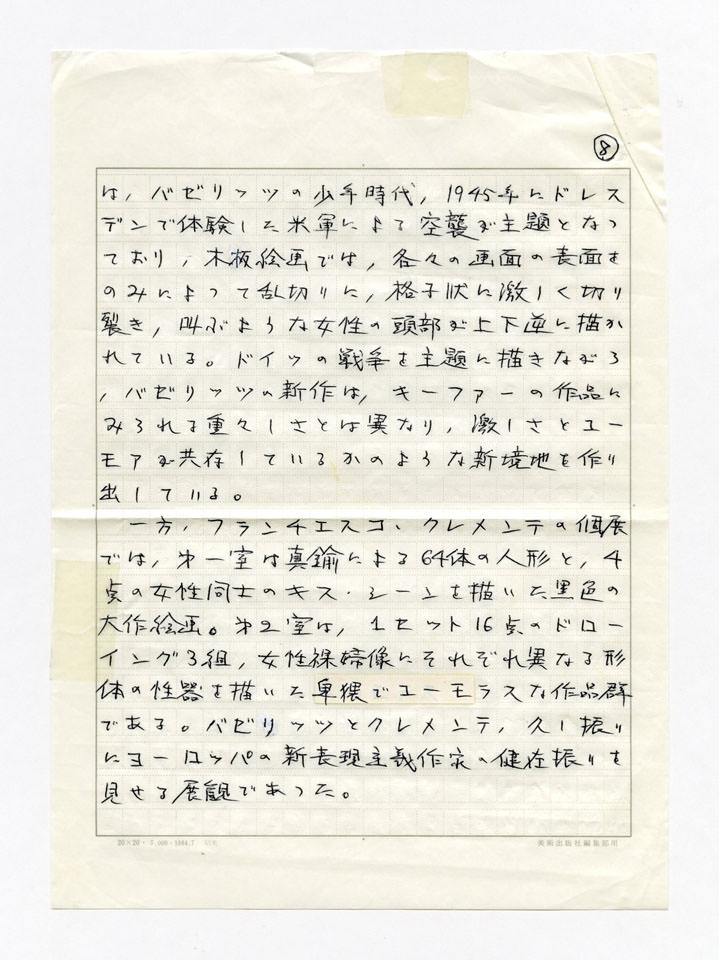 ⑧
は，バゼリッツの少年時代，1945年にドレス
デンで体験した米軍による空襲が主題となっ
ており，木板絵画では，各々の画面の表面を
のみによって乱切りに，格子状に激しく切り
裂き，叫ぶような女性の頭部が上下逆に描か
れている。ドイツの戦争を主題に描きながら
，バゼリッツの新作は，キーファーの作品に
みられる重々しさとは異なり，激しさとユー
モアが共存しているかのような新境地を作り
出している。
一方，フランチェスコ・クレメンテの個展
では，第一室は真鍮による64体の人形と，4
点の女性同士のキス・シーンを描いた黒色の
大作絵画。第2室は，1セット16点のドロー
イング3組，女性裸婦像にそれぞれ異なる形
体の性器を描いた卑猥でユーモラスな作品群
である。バゼリッツとクレメンテ，久し振り
にヨーロッパの新表現主義作家の健在振りを
見せる展観であった。
20×20・5,000・1984.7
美術出版社編集部用